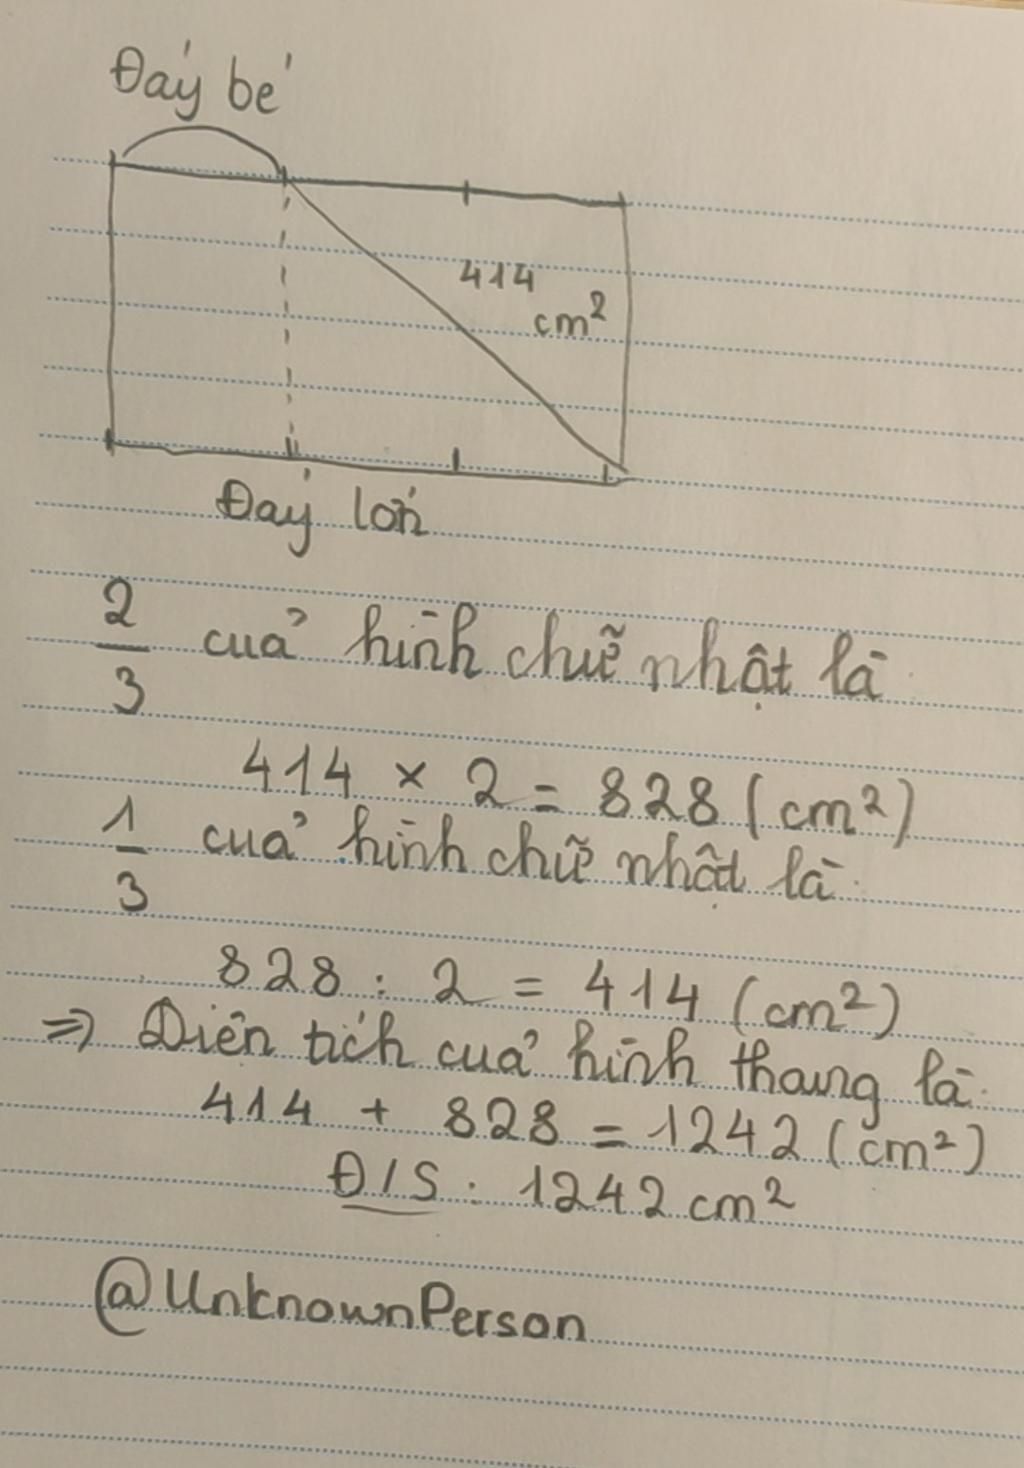 Đáy bé
414
cm²
Đáy lớn
2/3 của hình chữ nhật là
414 × 2 = 828 (cm²)
1/3 của hình chữ nhật là:
828 : 2 = 414 (cm²)
=> Diện tích của hình thang là:
414 + 828 = 1242 (cm²)
Đ/S : 1242 cm²
@UnknownPerson